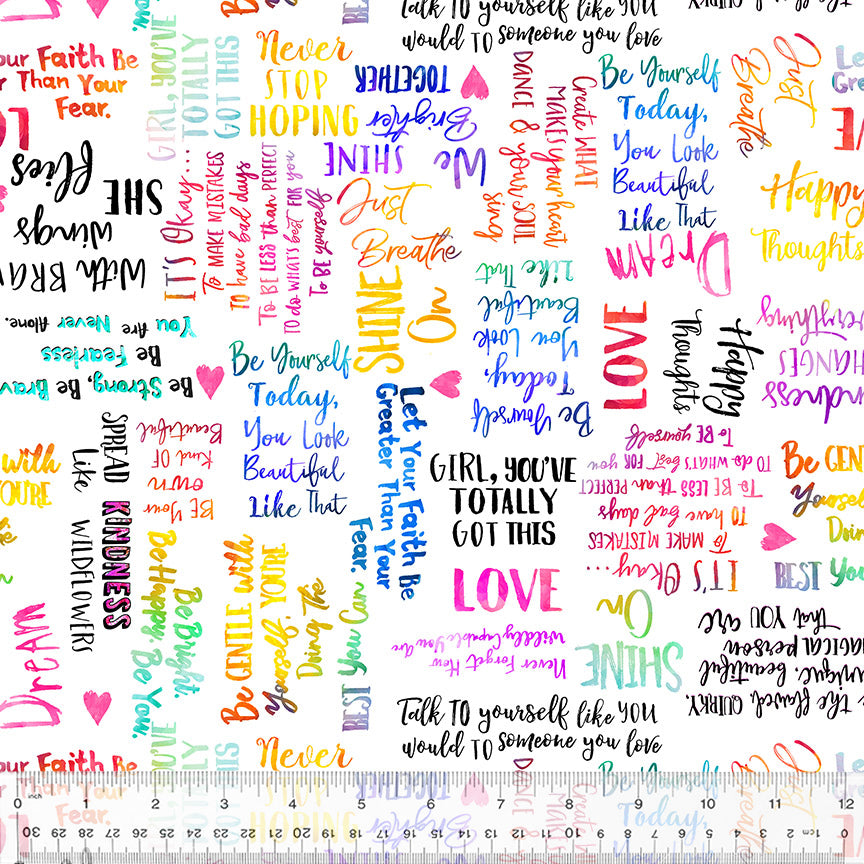 now.
Talk TO yourself like YOU
would TO someone you love
QUIRKY.
our Faith Be
r Than Your
Fear.
LO
GIRL, YOU'VE
TOTALLY
GOT THIS
Never
STOP
HOPING
We
SHINE
Brighter
TOGETHER
DANCE & your SOUL
sing
Create WHAT
MAKES your heart
Be Yourself
Today,
You Look
Beautiful
Like That
Just
Breathe
Le
Gre
Happy
Thoughts
SHE
flies
With BRAV
wings
IT'S Okay...
TO MAKE MISTAKES
TO have bad days
TO BE LESS than PERFECT
TO do WHAT'S best FOR you
TO BE yourself
Just
Breathe
SHINE
On
Dream
LOVE
Happy
Thoughts
Kindness
CHANGES
Everything
Be Strong, Be Brav
Be Fearless
You Are Never Alone.
Be Yourself
Today,
You Look
Beautiful
Like That
Be Yourself
Today,
You Look
Beautiful
Like That
Let Your Faith Be
Greater Than Your
Fear.
SPREAD KINDNESS
Like WILDFLOWERS
BE Your
own
Kind OF
Beautiful
GIRL, YOU'VE
TOTALLY
GOT THIS
LOVE
IT'S Okay...
TO MAKE MISTAKES
TO have bad days
TO BE LESS than PERFECT
TO do WHAT'S best FOR you
TO BE yourself
Be GEN
Yourself
Doin
BEST You
with
YOU'RE
Dream
Be Bright.
Be Happy. Be You.
Be GENTLE with
Yourself, YOU'RE
Doing The
BEST You Can
Never Forget How
Wildly Capable You Are
SHINE
On
Be the flawed, QUIRKY,
unique, beautiful,
MAGICAL person
That YOU are
Talk TO yourself like YOU
would TO someone you love
our Faith Be
Than Your
Fear.
Never
STOP
HOPING
Brighter
TOGETHER
Be Yourself
Today,
You Look
0 inch 1 2 3 4 5 6 7 8 9 10 11 12
30 29 28 27 26 25 24 23 22 21 20 19 18 17 16 15 14 13 12 11 10 9 8 7 6 5 4 3 2 1cm 0